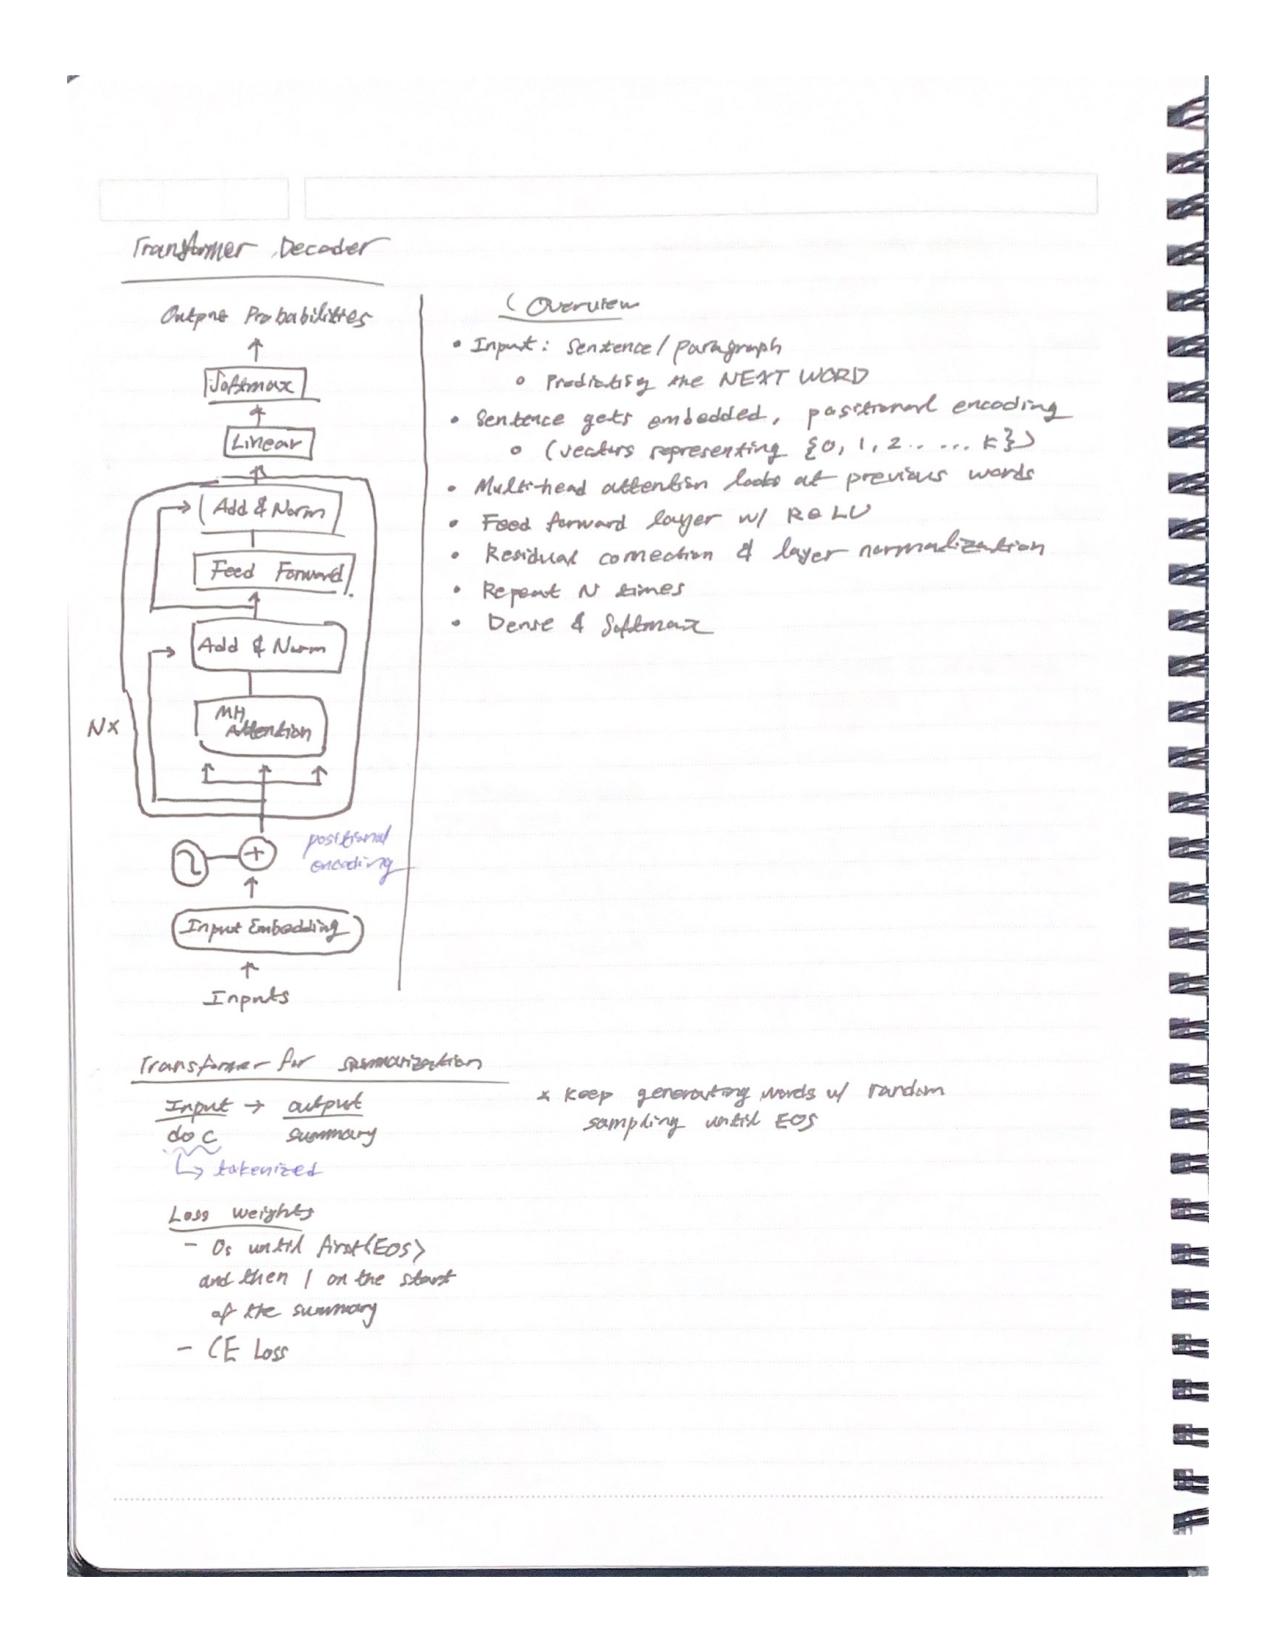 Transformer Decoder
Output Probabilities
Softmax
Linear
Add & Norm
Feed Forward
Add & Norm
MH
Attention
Nx
positional
encoding
Input Embedding
Inputs
Overview
• Input: Sentence/paragraph
o Predicting the NEXT WORD
• Sentence gets embedded, positional encoding
o (vectors representing {0, 1, 2.. ... k})
• Multi-head attention looks at previous words
• Feed forward layer w/ ReLU
• Residual connection & layer normalization
• Repeat N times
• Dense & Softmax
Transformer for summarization
Input → output
doc summary
↳ tokenized
* Keep generating words w/ random
sampling until EOS
Loss weights
- 0s until first <EOS>
and then 1 on the start
of the summary
- CE Loss